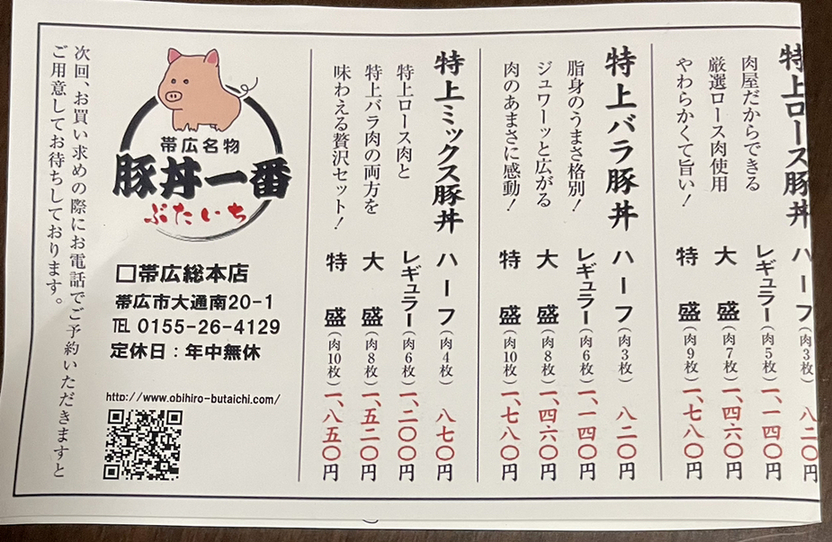 特上ロース豚丼
肉屋だからできる
厳選ロース肉使用
やわらかくて旨い！
ハーフ（肉3枚）八二〇円
レギュラー（肉5枚）一、一四〇円
大盛（肉7枚）一、四六〇円
特盛（肉9枚）一、七八〇円
特上バラ豚丼
脂身のうまさ格別！
ジュワーッと広がる
肉のあまさに感動！
ハーフ（肉3枚）八二〇円
レギュラー（肉6枚）一、一四〇円
大盛（肉8枚）一、四六〇円
特盛（肉10枚）一、七八〇円
特上ミックス豚丼
特上ロース肉と
特上バラ肉の両方を
味わえる贅沢セット！
ハーフ（肉4枚）八七〇円
レギュラー（肉6枚）一、二〇〇円
大盛（肉8枚）一、五二〇円
特盛（肉10枚）一、八五〇円
帯広名物
豚丼一番
ぶたいち
□帯広総本店
帯広市大通南20-1
TEL 0155-26-4129
定休日：年中無休
http://www.obihiro-butaichi.com/
次回、お買い求めの際にお電話でご予約いただきますと
ご用意してお待ちしております。